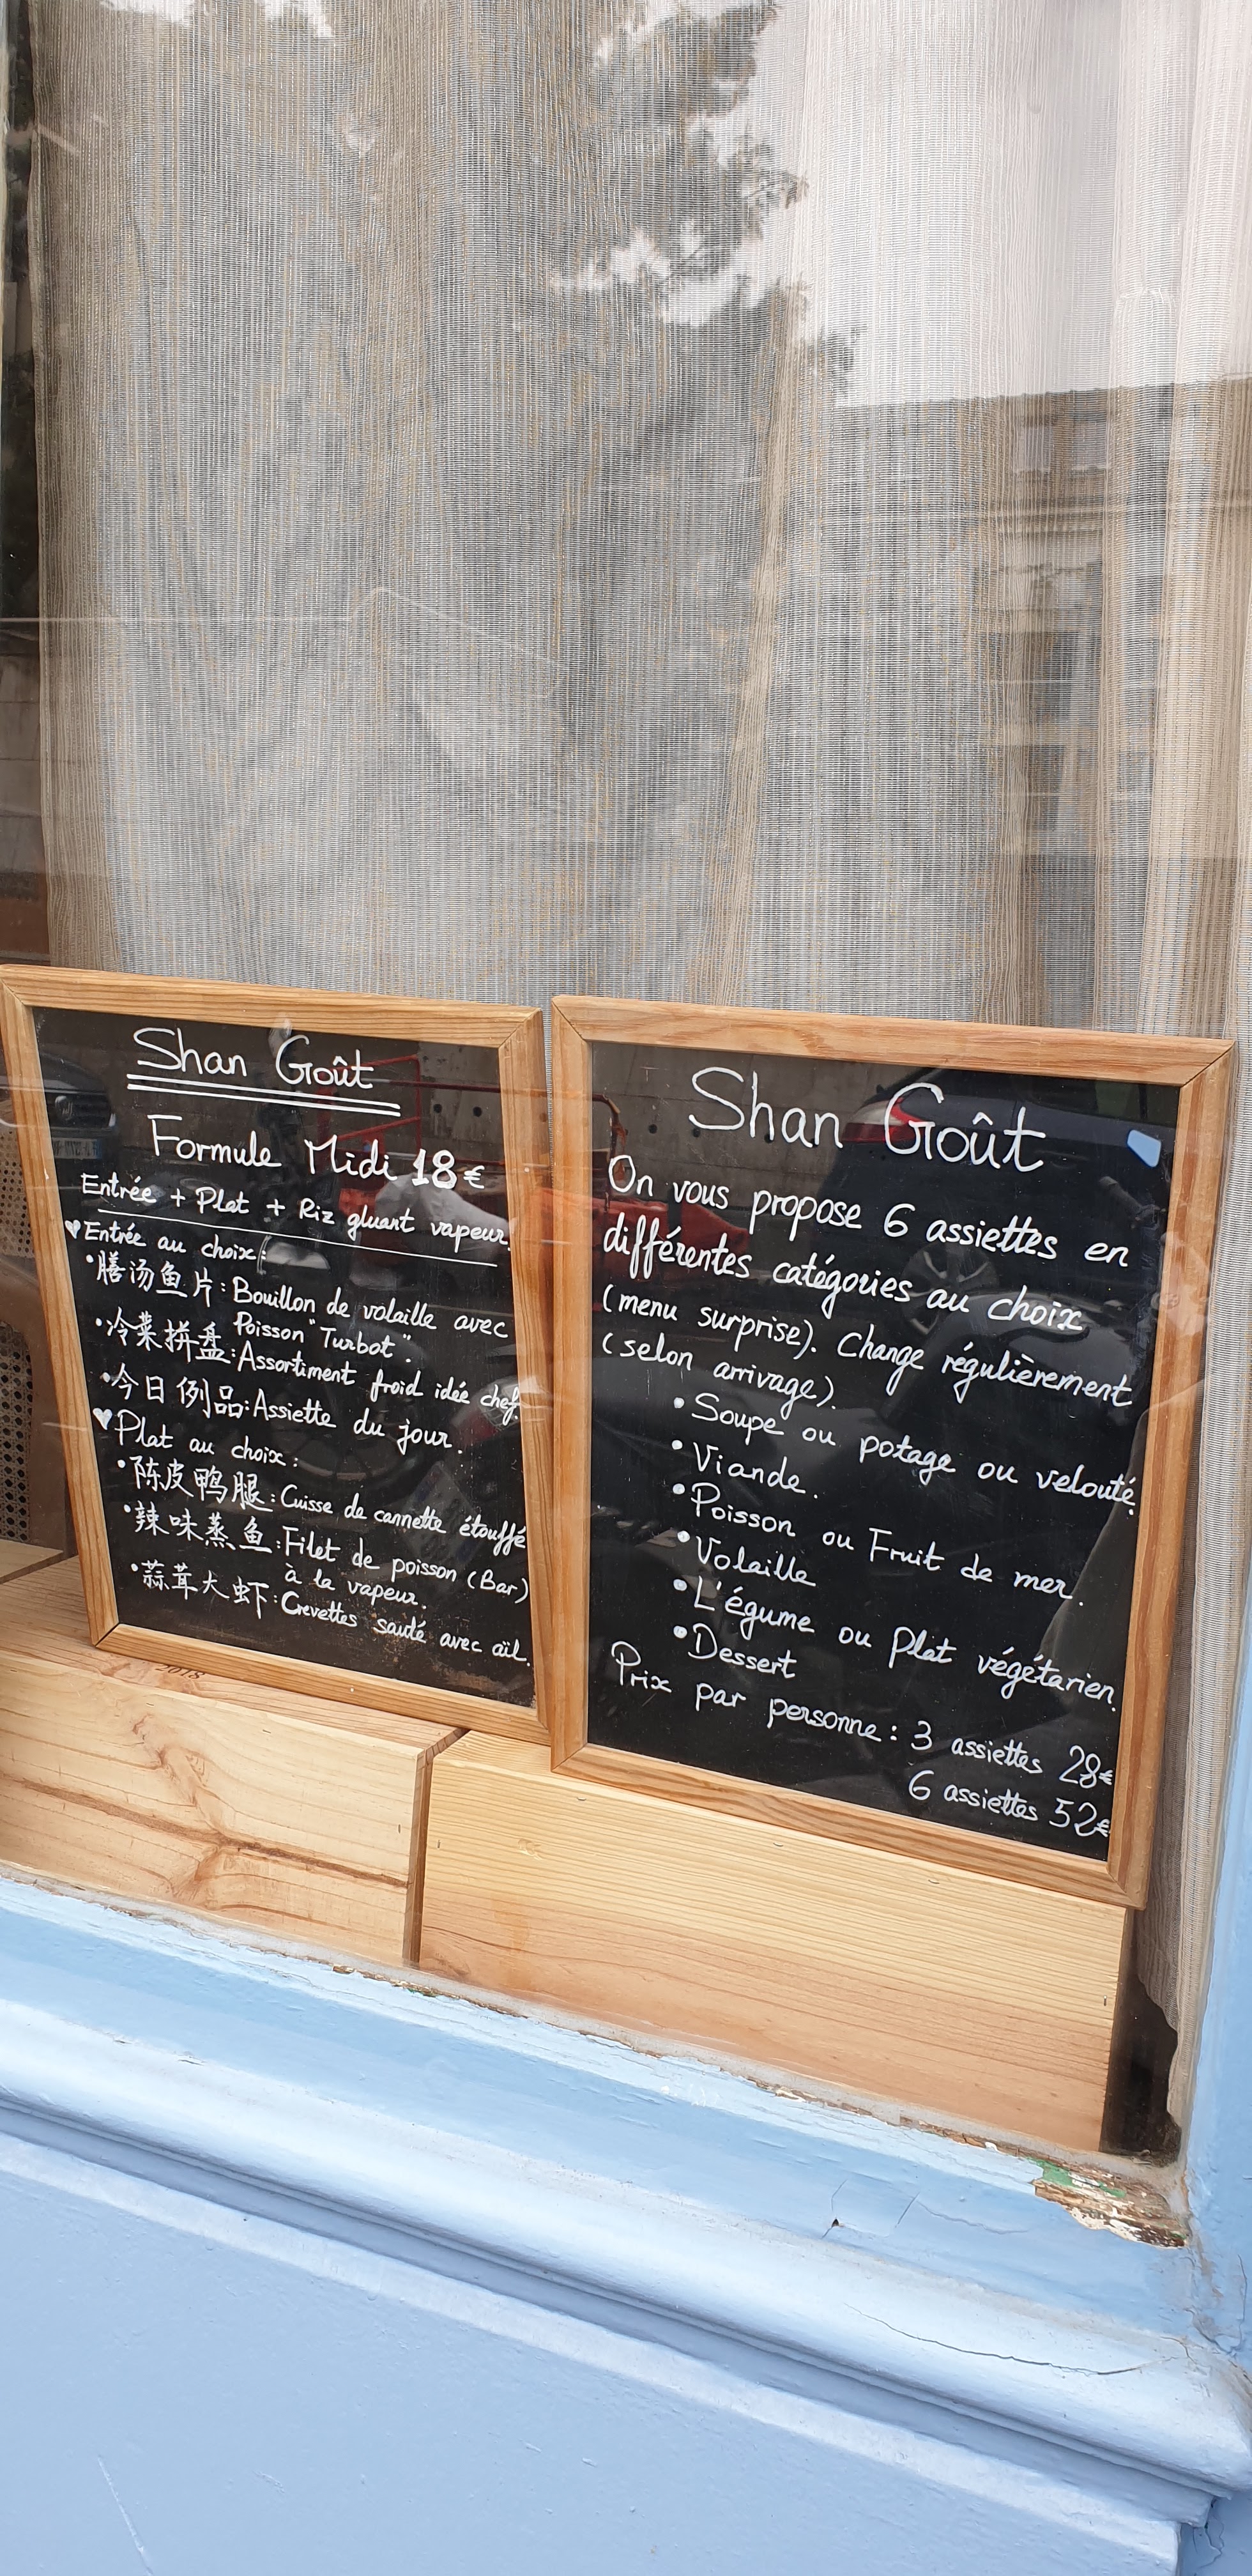 Shan Goût
Formule Midi 18€
Entrée + Plat + Riz gluant vapeur.
♥Entrée au choix:
•膳汤鱼片: Bouillon de volaille avec
Poisson "Turbot".
•冷菜拼盘: Assortiment froid idée chef.
•今日例品: Assiette du jour.
♥Plat au choix:
•陈皮鸭腿: Cuisse de cannette étouffé
•辣味蒸鱼: Filet de poisson (Bar)
à la vapeur.
•蒜茸大虾: Crevettes sauté avec aïl.
2018
Shan Goût
On vous propose 6 assiettes en
différentes catégories au choix
(menu surprise). Change régulièrement
(selon arrivage).
•Soupe ou potage ou velouté.
•Viande.
•Poisson ou Fruit de mer.
•Volaille
•L'égume ou Plat végétarien.
•Dessert
Prix par personne: 3 assiettes 28€
6 assiettes 52€